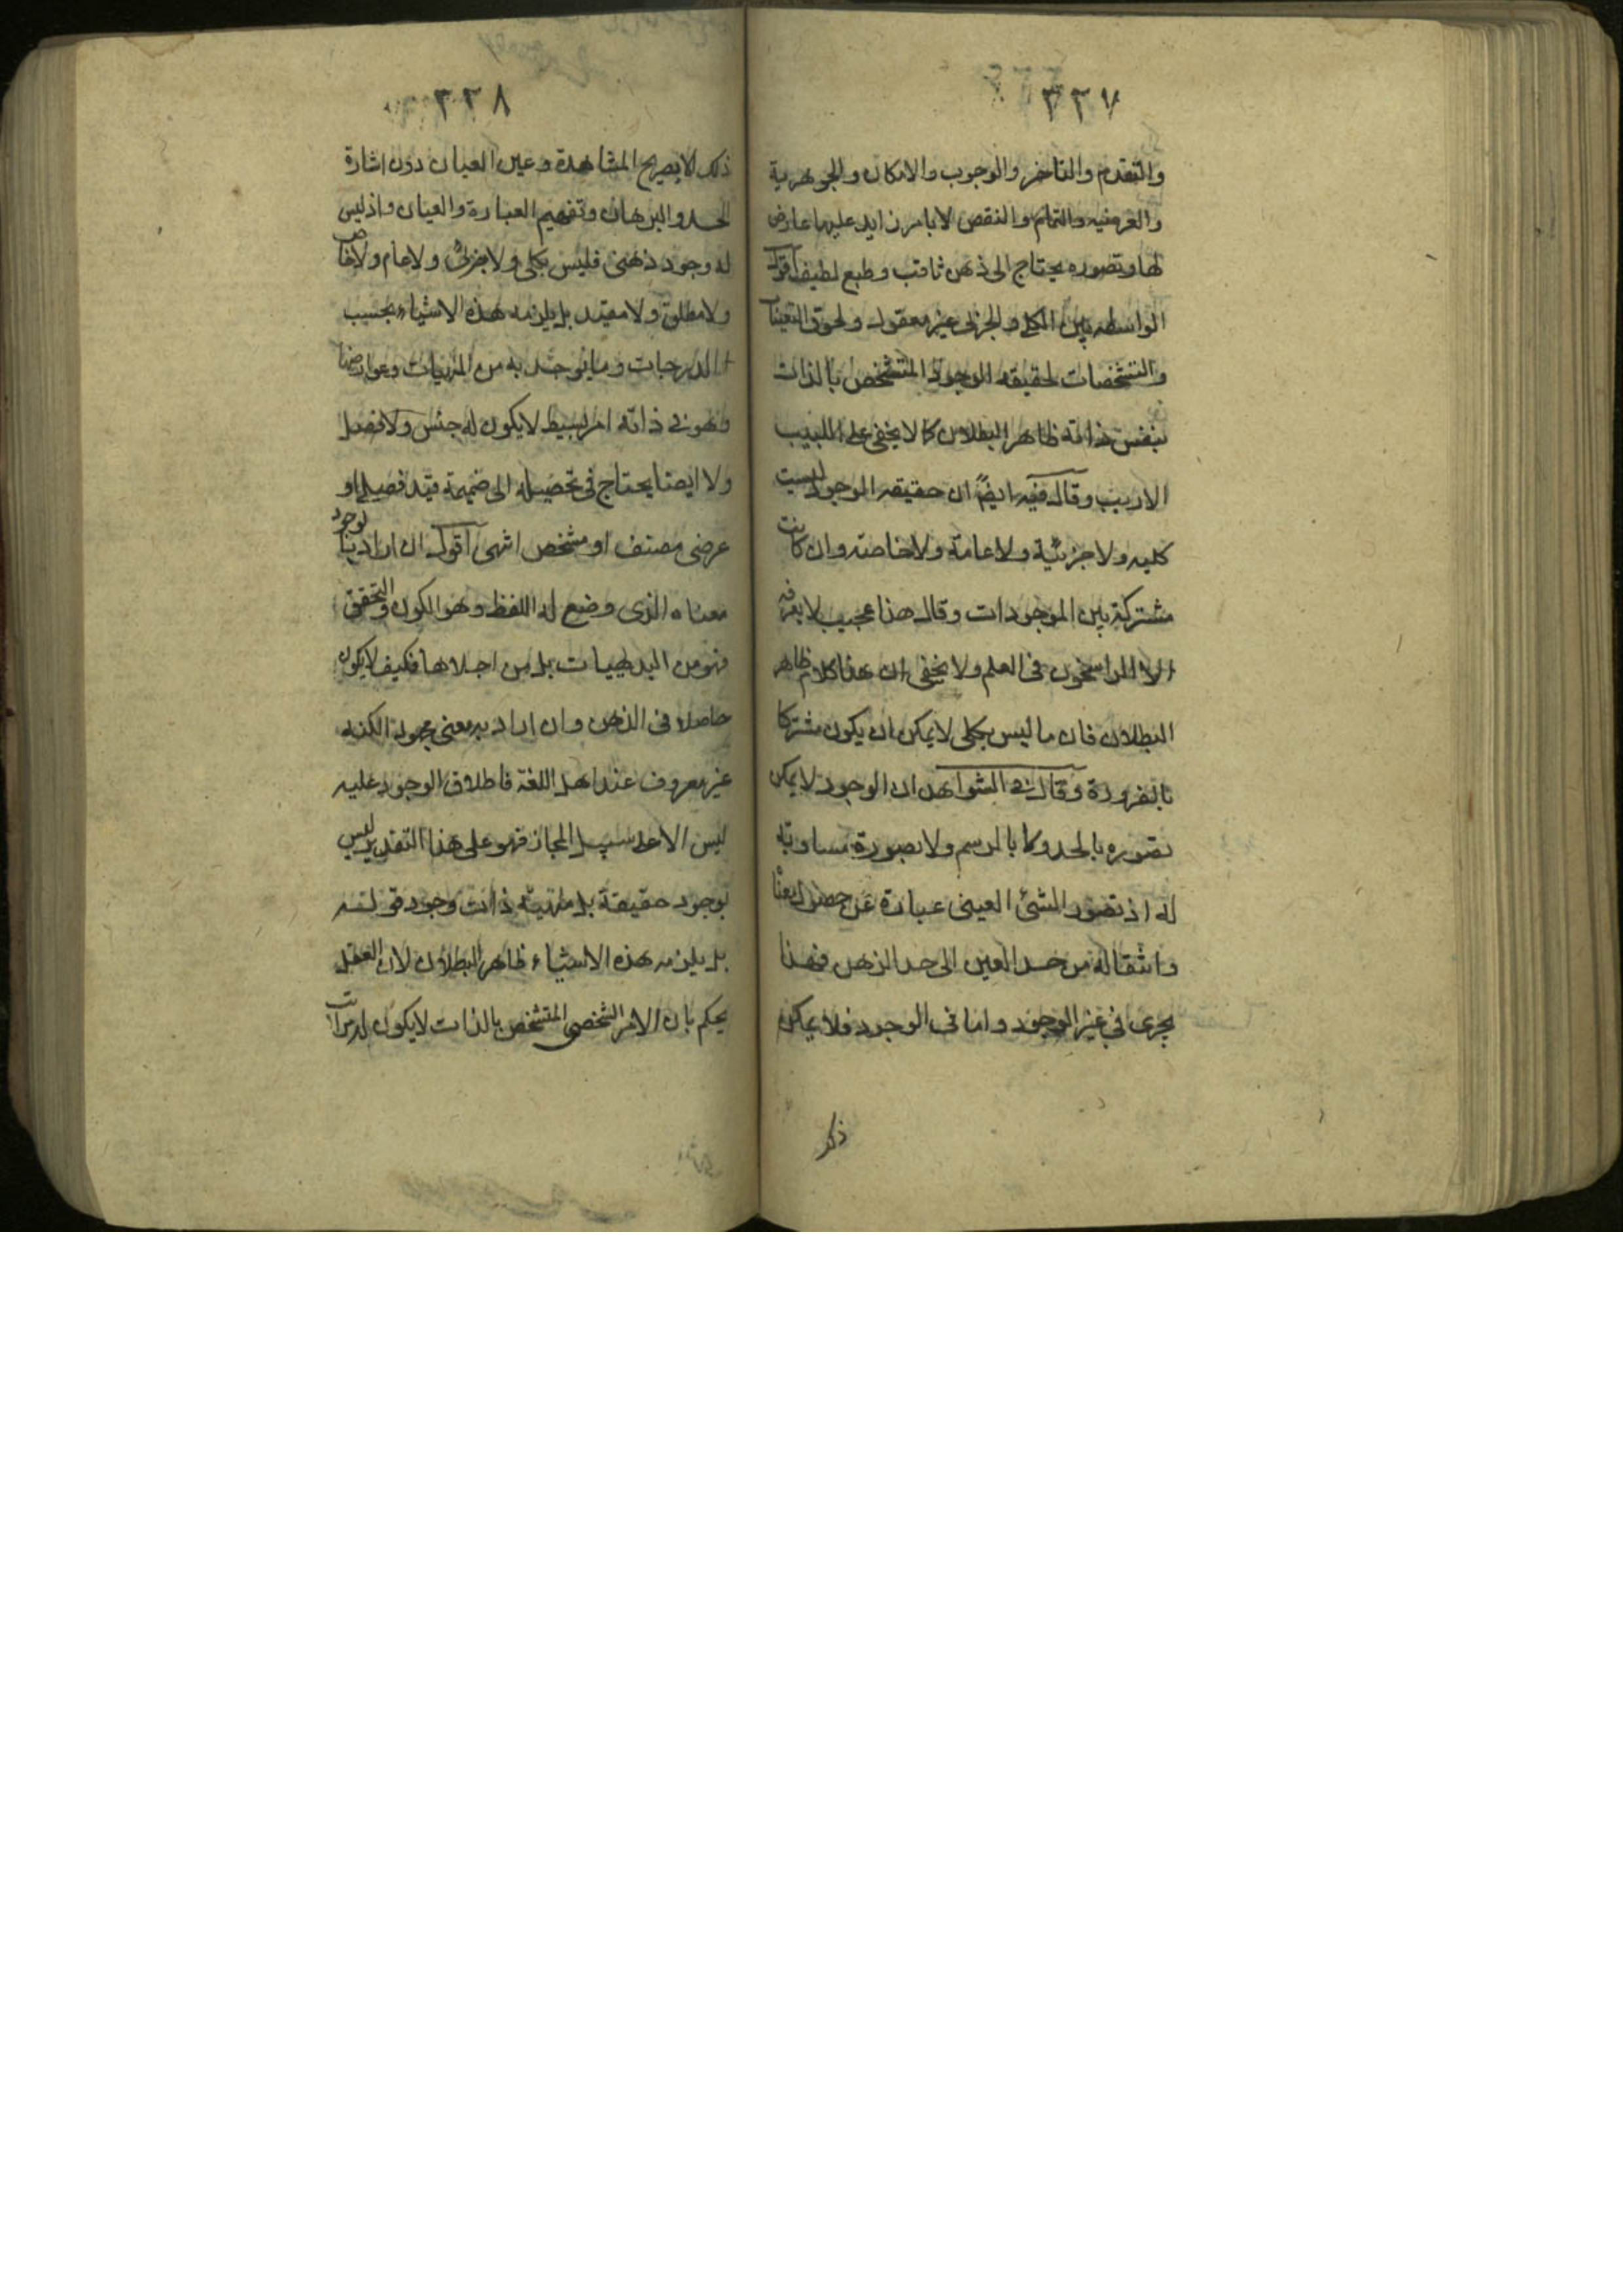 ٣٣٧
والتقدم والتاخر والوجوب والامكان والجوهرية
والعرضيه والتمام والنقص لا بامر زايد عليها عارض
لها وتصوره يحتاج الى ذهن ثاقب وطبع لطيف اقول
الواسطه بين الكلي والجزئي غير معقول ولحوق التعينات
والتشخصات لحقيقه الوجود المتشخص بالذات
بنفس ذاته ظاهر البطلان كما لا يخفى على اللبيب
الاريب وقال فيه ايضا ان حقيقه الوجود ليست
كليه ولا جزئية ولا عامة ولا خاصة وان كانت
مشتركة بين الموجودات وقال هذا عجيب لا يعرفه
الا الراسخون في العلم ولا يخفى ان هذا كلام ظاهر
البطلان فان ما ليس بكلى لا يمكن ان يكون مشتركا
بالضرورة وقال في الشواهد ان الوجود لا يمكن
تصوره بالحد ولا بالرسم ولا بصورة مساوية
له اذ تصور الشئ العينى عبارة عن حصول معناه
وانتقاله من حد العين الى حد الذهن فهذا
يجرى في غير الوجود واما في الوجود فلا يمكن
ذلك
٣٣٨
ذلك الا بصريح المشاهدة وعين العيان دون اشارة
الحد والبرهان وتفهيم العبارة والعيان واذ ليس
له وجود ذهنى فليس بكلى ولا بجزئى ولا عام ولا خاص
ولا مطلق ولا مقيد بل يلزمه هذه الاشياء بحسب
الدرجات وما يوجد به من المهيات وعوارضها
وهو في ذاته امر بسيط لا يكون له جنس ولا فصل
ولا ايضا يحتاج في تحصيله الى ضميمة قيد فصيلى او
عرضى مصنف او مشخص انتهى اقول ان اراد بالوجود
معناه الذى وضع له اللفظ وهو الكون والتحقق
فهو من البديهيات بل من اجلاها فكيف لا يكون
حاصلا في الذهن وان اراد به معنى مجهول الكنه
غير معروف عند اهل اللغة فاطلاق الوجود عليه
ليس الا على سبيل المجاز فهو على هذا التقدير ليس
بوجود حقيقة بل مهية ذات وجود
بل يلزمه هذه الاشياء ظاهر البطلان لان العقل
يحكم بان الامر الشخصى المتشخص بالذات لا يكون له مراتب